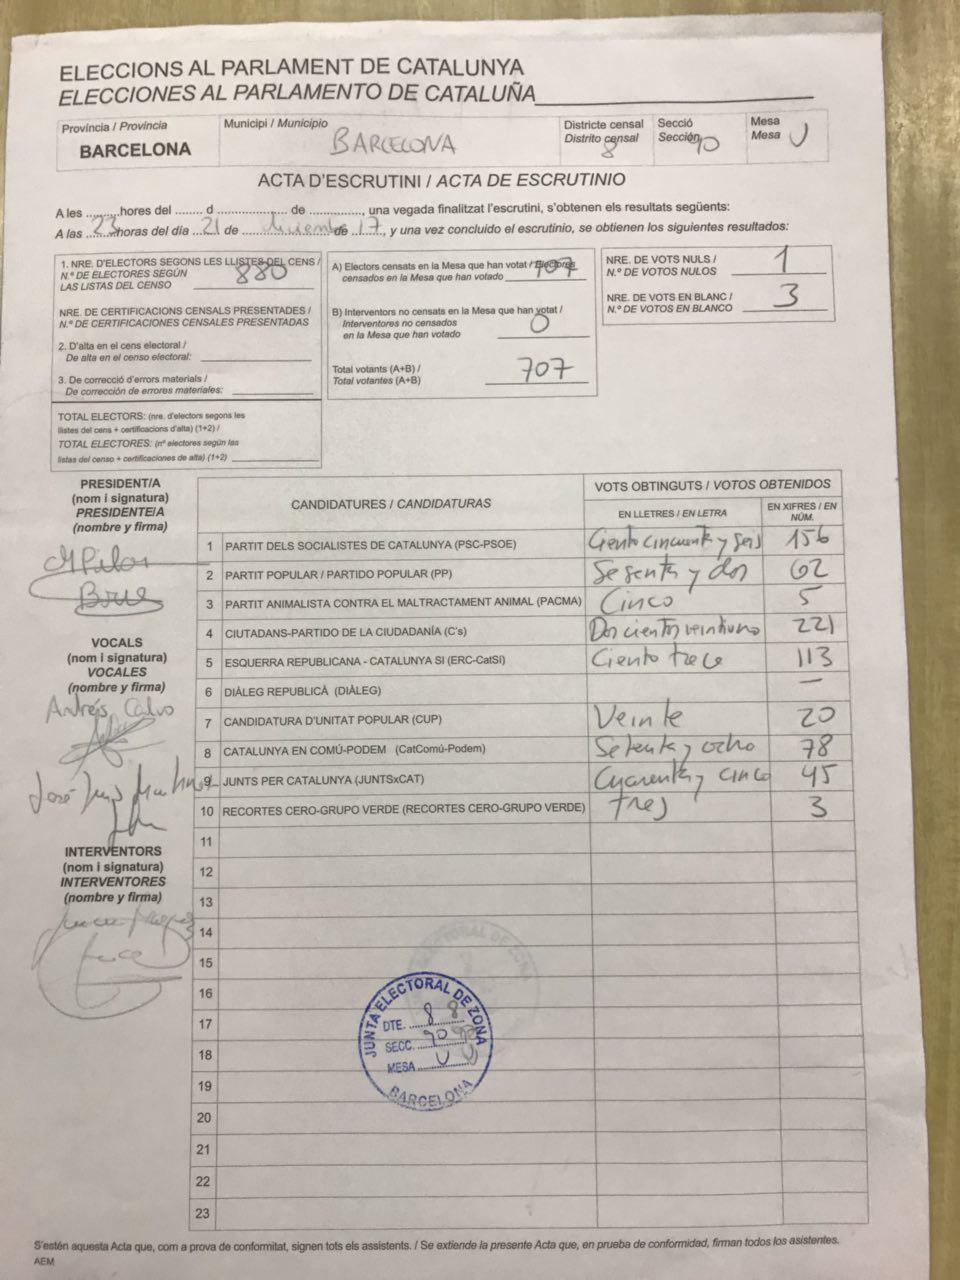 ELECCIONS AL PARLAMENT DE CATALUNYA
ELECCIONES AL PARLAMENTO DE CATALUÑA
Província / Provincia
BARCELONA
Municipi / Municipio
BARCELONA
Districte censal
Distrito censal
8
Secció
Sección
90
Mesa
Mesa U
ACTA D'ESCRUTINI / ACTA DE ESCRUTINIO
A les .........hores del ........ d .................... de .............., una vegada finalitzat l'escrutini, s'obtenen els resultats següents:
A las ...23...horas del día ...21 de ... de ...17..., y una vez concluido el escrutinio, se obtienen los siguientes resultados:
1. NRE. D'ELECTORS SEGONS LES LLISTES DEL CENS /
N.º DE ELECTORES SEGÚN
LAS LISTAS DEL CENSO
880
NRE. DE CERTIFICACIONS CENSALS PRESENTADES /
N.º DE CERTIFICACIONES CENSALES PRESENTADAS
2. D'alta en el cens electoral /
De alta en el censo electoral:
3. De correcció d'errors materials /
De corrección de errores materiales:
TOTAL ELECTORS: (nre. d'electors segons les
llistes del cens + certificacions d'alta) (1+2) /
TOTAL ELECTORES: (nº electores según las
listas del censo + certificaciones de alta) (1+2)
A) Electors censats en la Mesa que han votat / Electores
censados en la Mesa que han votado
707
B) Interventors no censats en la Mesa que han votat /
Interventores no censados
en la Mesa que han votado
0
Total votants (A+B) /
Total votantes (A+B)
707
NRE. DE VOTS NULS /
N.º DE VOTOS NULOS
1
NRE. DE VOTS EN BLANC /
N.º DE VOTOS EN BLANCO
3
PRESIDENT/A
(nom i signatura)
PRESIDENTE/A
(nombre y firma)
MPilar
Brue
VOCALS
(nom i signatura)
VOCALES
(nombre y firma)
Andrés Calvo
José
INTERVENTORS
(nom i signatura)
INTERVENTORES
(nombre y firma)
CANDIDATURES / CANDIDATURAS
VOTS OBTINGUTS / VOTOS OBTENIDOS
EN LLETRES / EN LETRA
EN XIFRES / EN NÚM.
1 PARTIT DELS SOCIALISTES DE CATALUNYA (PSC-PSOE) Ciento cincuenta y seis 156
2 PARTIT POPULAR / PARTIDO POPULAR (PP) Sesenta y dos 62
3 PARTIT ANIMALISTA CONTRA EL MALTRACTAMENT ANIMAL (PACMA) Cinco 5
4 CIUTADANS-PARTIDO DE LA CIUDADANÍA (C's) Dos cientos veintiuno 221
5 ESQUERRA REPUBLICANA - CATALUNYA SI (ERC-CatSí) Ciento trece 113
6 DIÀLEG REPUBLICÀ (DIÀLEG) —
7 CANDIDATURA D'UNITAT POPULAR (CUP) Veinte 20
8 CATALUNYA EN COMÚ-PODEM (CatComú-Podem) Setenta y ocho 78
9 JUNTS PER CATALUNYA (JUNTSxCAT) Cuarenta y cinco 45
10 RECORTES CERO-GRUPO VERDE (RECORTES CERO-GRUPO VERDE) tres 3
11
12
13
14
15
16
17
18
19
20
21
22
23
JUNTA ELECTORAL DE ZONA
DTE. 8
SECC. 90
MESA U
BARCELONA
S'estén aquesta Acta que, com a prova de conformitat, signen tots els assistents. / Se extiende la presente Acta que, en prueba de conformidad, firman todos los asistentes.
AEM